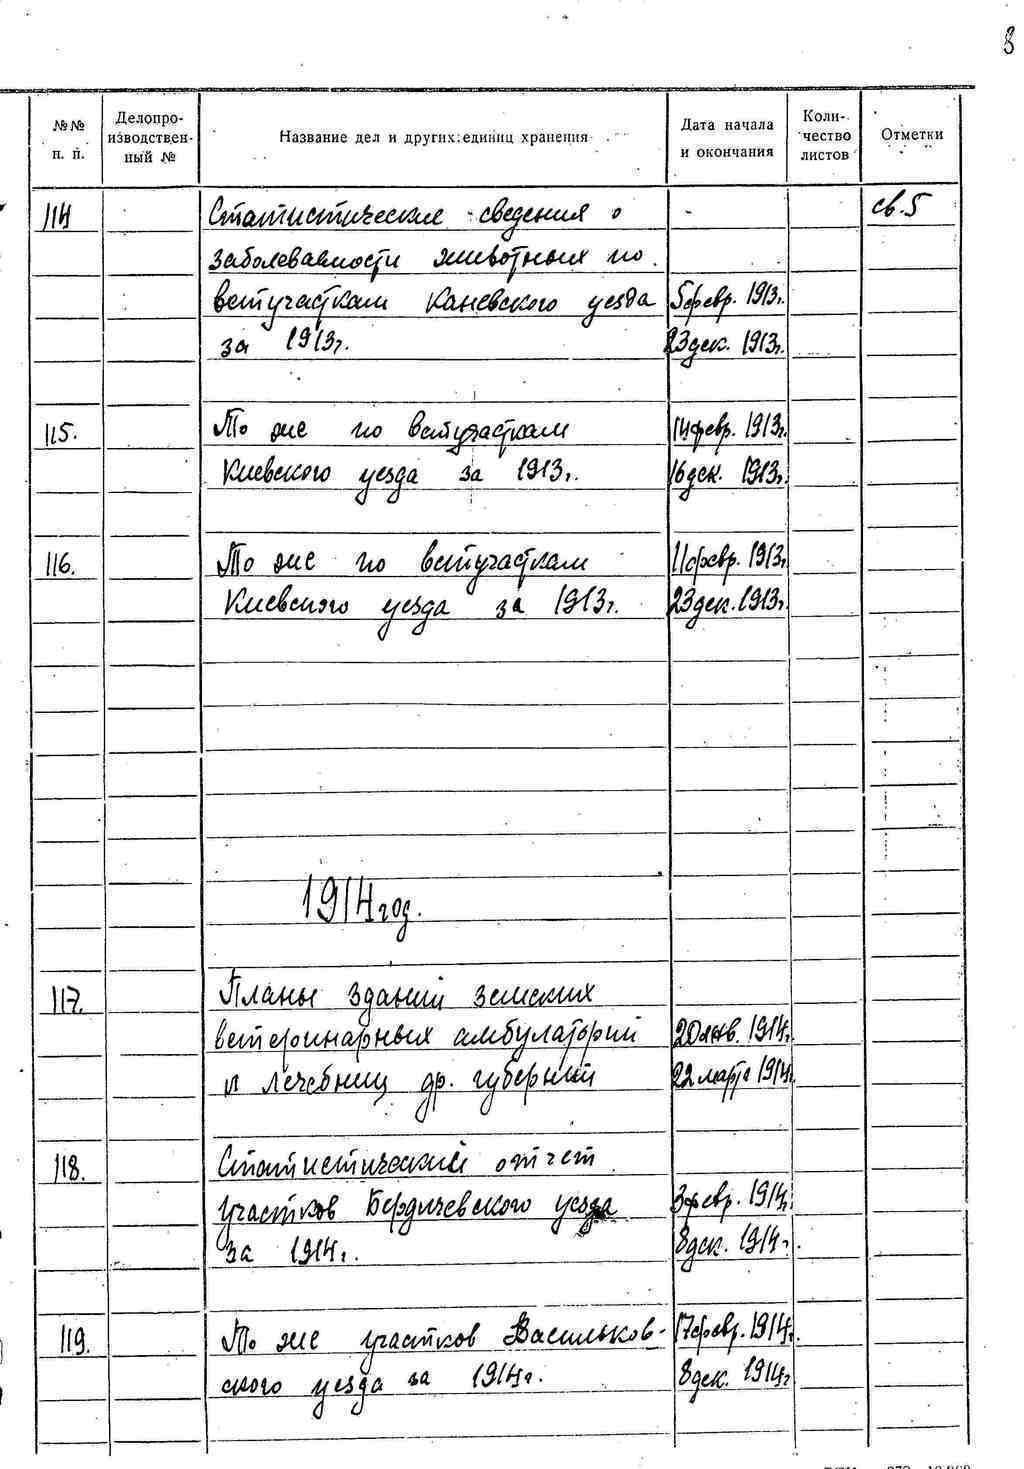 8
№№ п. п.
Делопроизводственный №
Название дел и других единиц хранения
Дата начала и окончания
Количество листов
Отметки
114 Статистические сведения о - св. 5
заболеваемости животных по
ветучасткам Каневского уезда 5 февр. 1913г.
за 1913г. 23 дек. 1913г.
115. То же по ветучасткам 14 февр. 1913г.
Киевского уезда за 1913г. 16 дек. 1913г.
116. То же по ветучасткам 11 февр. 1913г.
Киевского уезда за 1913г. 23 дек. 1913г.
1914 год.
117. Планы зданий земских
ветеринарных амбулаторий 20 янв. 1914г.
и лечебниц др. губерний 22 марта 1914г.
118. Статистический отчет
участков Бердичевского уезда 3 февр. 1914г.
за 1914г. 8 дек. 1914г.
119. То же участков Васильков- 17 февр. 1914г.
ского уезда за 1914г. 8 дек. 1914г.